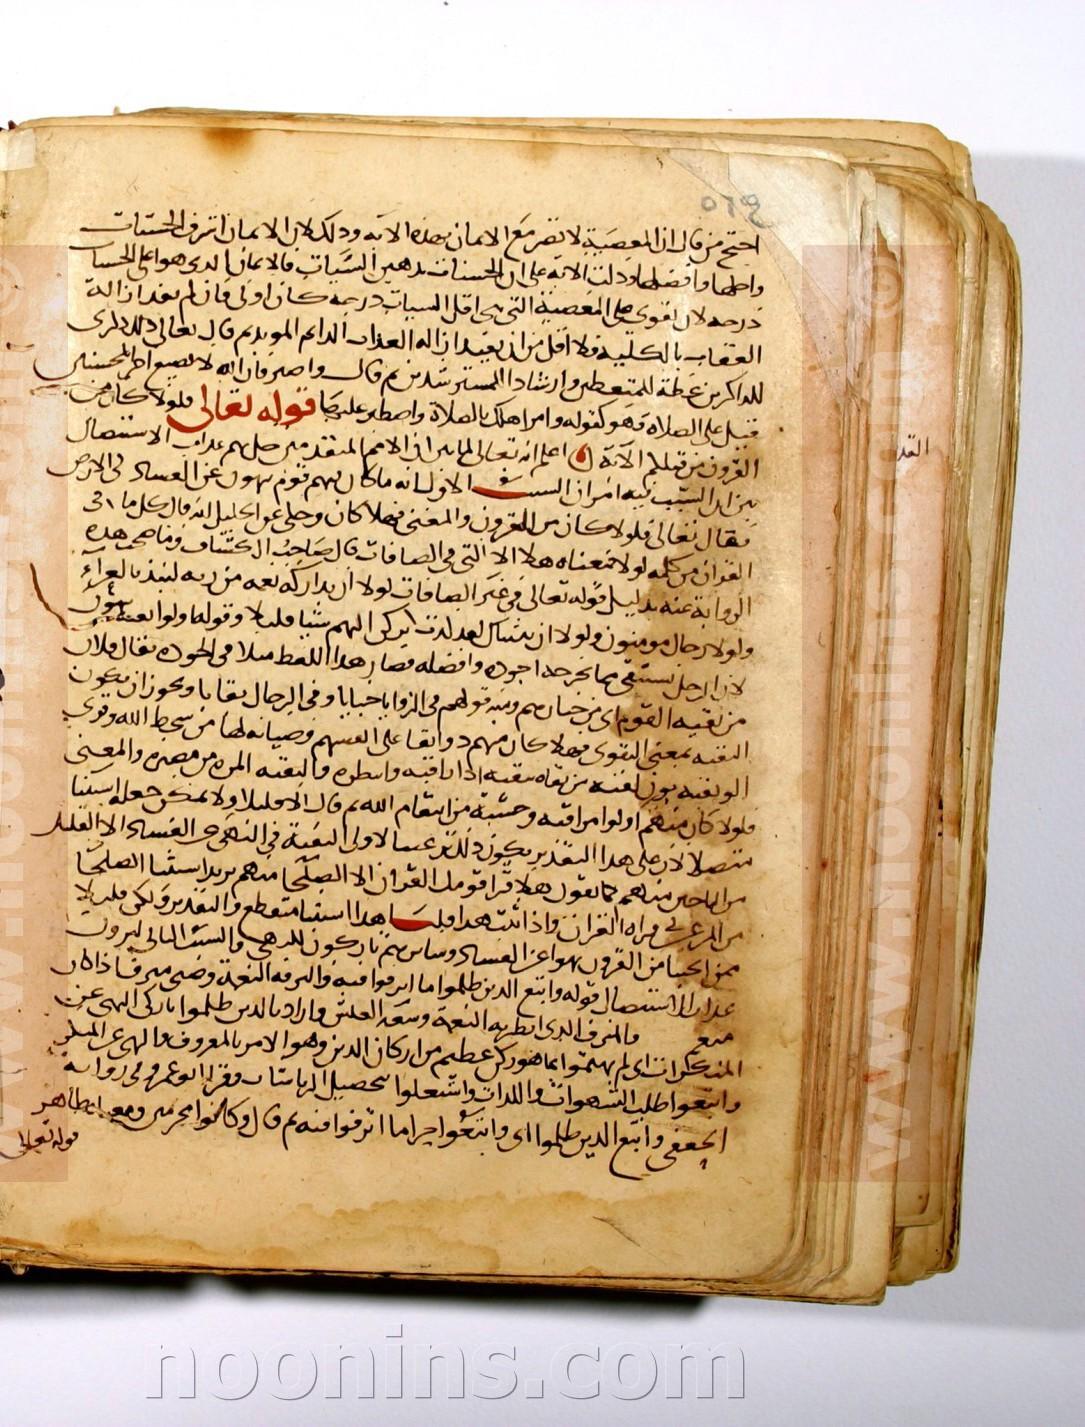 احتج من قال ان المعصية لا تضر مع الايمان بهذه الاية وذلك لان الايمان اشرف الحسنات
واجلها وافضلها ودلت الاية على ان الحسنات يذهبن السيات فالايمان الذي هو اعلى الحسنات
درجة لان يقوى على المعصية التي هي اقل السيات درجة كان اولى فان لم يفد ازالة
العقاب بالكلية فلا اقل من ان يفيد ازالة العذاب الدايم المويد ثم قال تعالى ذلك ذكرى
للذاكرين عظة للمتعظين وارشادا للمسترشدين ثم قال واصبر فان الله لا يضيع اجر المحسنين
قيل على الصلاة فهو كقوله وامر اهلك بالصلاة واصطبر عليها قوله تعالى فلولا كان من
القرون من قبلكم الاية اعلم انه تعالى لما بين ان الامم المتقدمين حل بهم عذاب الاستيصال
بين ان السبب فيه امران السبب الاول انه ما كان فيهم قوم ينهون عن الفساد في الارض
فقال تعالى فلولا كان من القرون والمعنى فهلا كان وحكى عن الخليل انه قال كل ما في
القران من كلمة لولا فمعناه هلا الا التي في الصافات قال صاحب الكشاف وما صحت هذه
الرواية عنه بدليل قوله تعالى في غير الصافات لولا ان تداركه نعمة من ربه لنبذ بالعراء
ولولا رجال مومنون ولولا ان ثبتناك لقد كدت تركن اليهم شيا قليلا وقوله اولوا بقية
لان الرجل يستبقي مما يخرجه اجوده وافضله فصار هذا اللفظ مثلا في الجودة يقال فلان
من بقية القوم اي من خيارهم ومنه قولهم في الزوايا خبايا وفي الرجال بقايا ويجوز ان يكون
البقية بمعنى التقوى فهلا كان منهم ذو ابقا على انفسهم وصيانة لها من سخط الله وقري
اولو بقية بوزن لقية من بقاه يبقيه اذا راقبه وانتظره والبقية المرة من مصدره والمعنى
فلولا كان منهم اولوا مراقبة وخشية من انتقام الله ثم قال الا قليلا ولا يمكن جعله استثنا
متصلا لان على هذا التقدير يكون ذلك ترغيبا لاولي البقية في النهي عن الفساد الا القليل
من الناجين منهم كما تقول هلا قرا قومك القران الا الصلحا منهم تريد استثنا الصلحا
من المرغبين في قراة القران واذا ثبت هذا قلنا هذا استثنا منقطع والتقدير ولكن قليلا
ممن انجينا من القرون نهوا عن الفساد وسايرهم تاركون للنهي والسبب الثاني لنزول
عذاب الاستيصال قوله واتبع الذين ظلموا ما اترفوا فيه والترفه النعمة وصبي مترف اذا كان
منعم والمترف الذي ابطرته النعمة وسعة العيش واراد بالذين ظلموا تاركي النهي عن
المنكرات اي لم يهتموا بما هو ركن عظيم من اركان الدين وهو الامر بالمعروف والنهي عن المنكر
واتبعوا طلب الشهوات واللذات واشتغلوا بتحصيل الرياسات وقرا ابو عمرو في رواية
الجعفي واتبع الذين ظلموا اي واتبعوا جزاما اترفوا فيه ثم قال وكانوا مجرمين ومعناه ظاهر
قوله تعالى
noonins.com